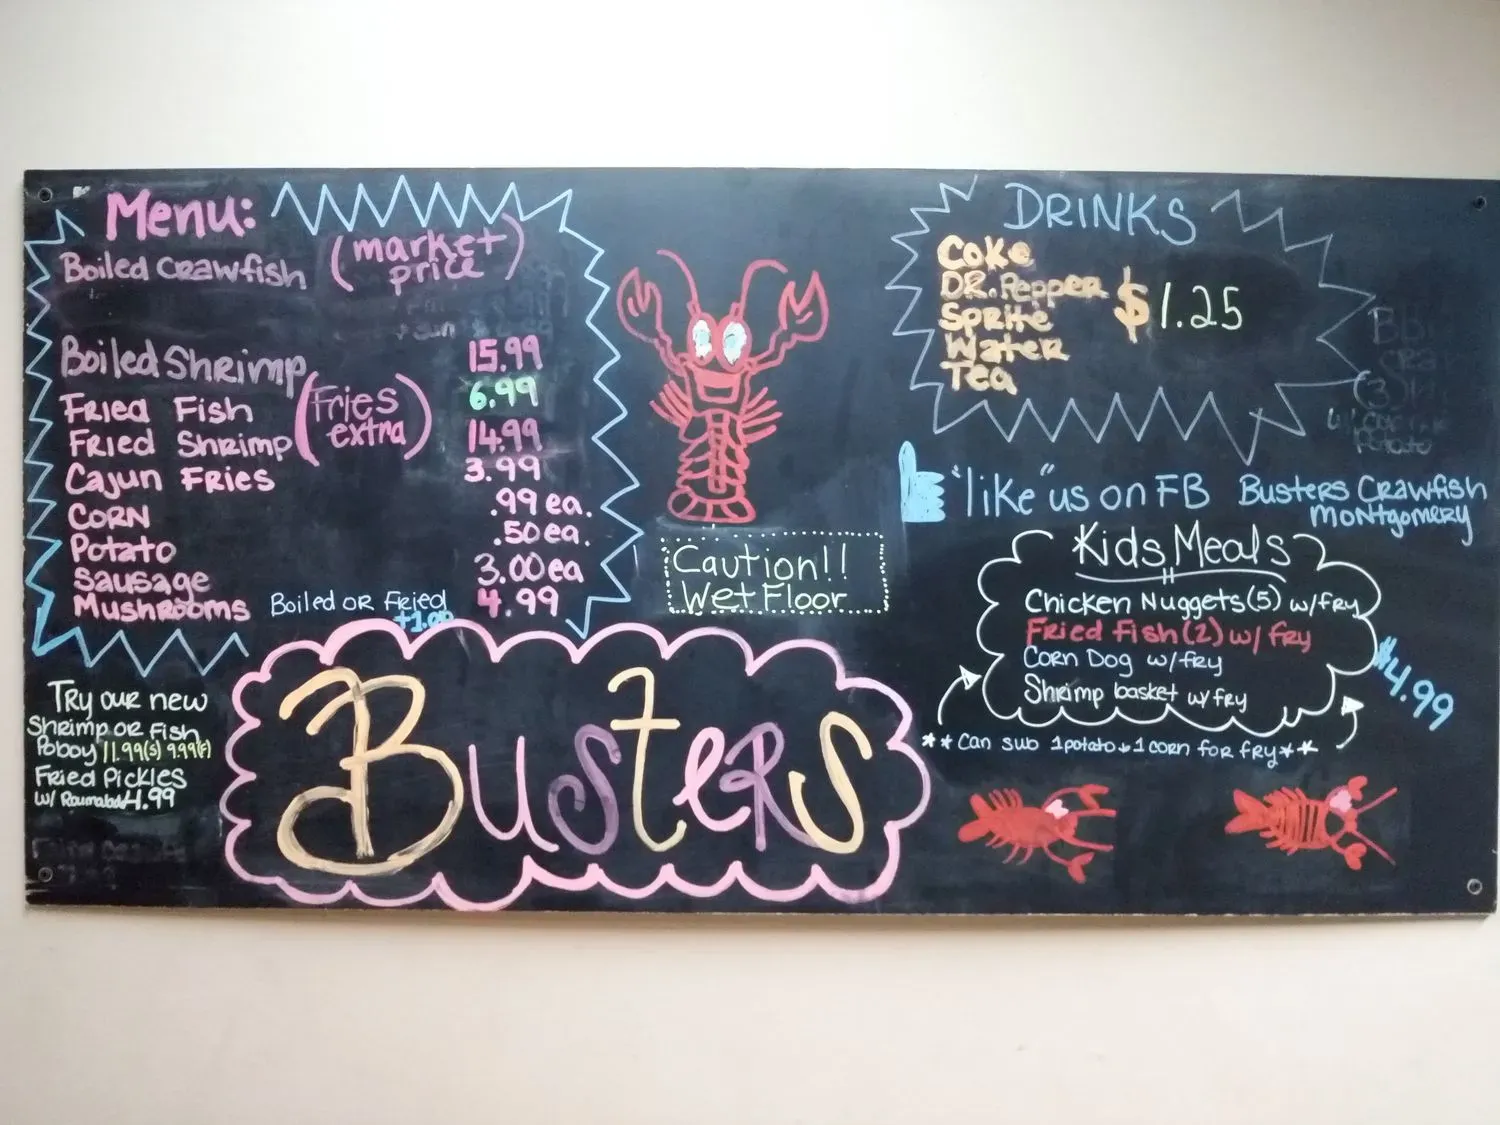 Menu:
Boiled Crawfish (market price)
Boiled Shrimp 15.99
Fried Fish 6.99
(fries extra)
Fried Shrimp 14.99
Cajun Fries 3.99
Corn .99 ea.
Potato .50 ea.
Sausage 3.00 ea
Mushrooms Boiled or Fried 4.99
+1.00
Try our new
Shrimp or Fish
Poboy 11.99(S) 9.99(F)
Fried Pickles
w/ 4.99
Busters
Caution!!
Wet Floor
DRINKS
Coke
DR. Pepper
Sprite
Water
Tea
$1.25
"like" us on FB Busters Crawfish
Montgomery
Kids Meals
Chicken Nuggets (5) w/fry
Fried Fish (2) w/ fry
Corn Dog w/fry
Shrimp basket w/ fry
$4.99
**Can sub 1 potato + 1 corn for fry**